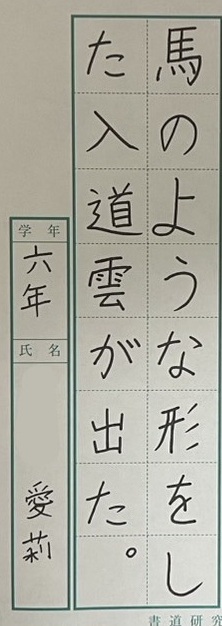 馬のような形をし
た入道雲が出た。
学年
六年
氏名
愛莉
書道研究